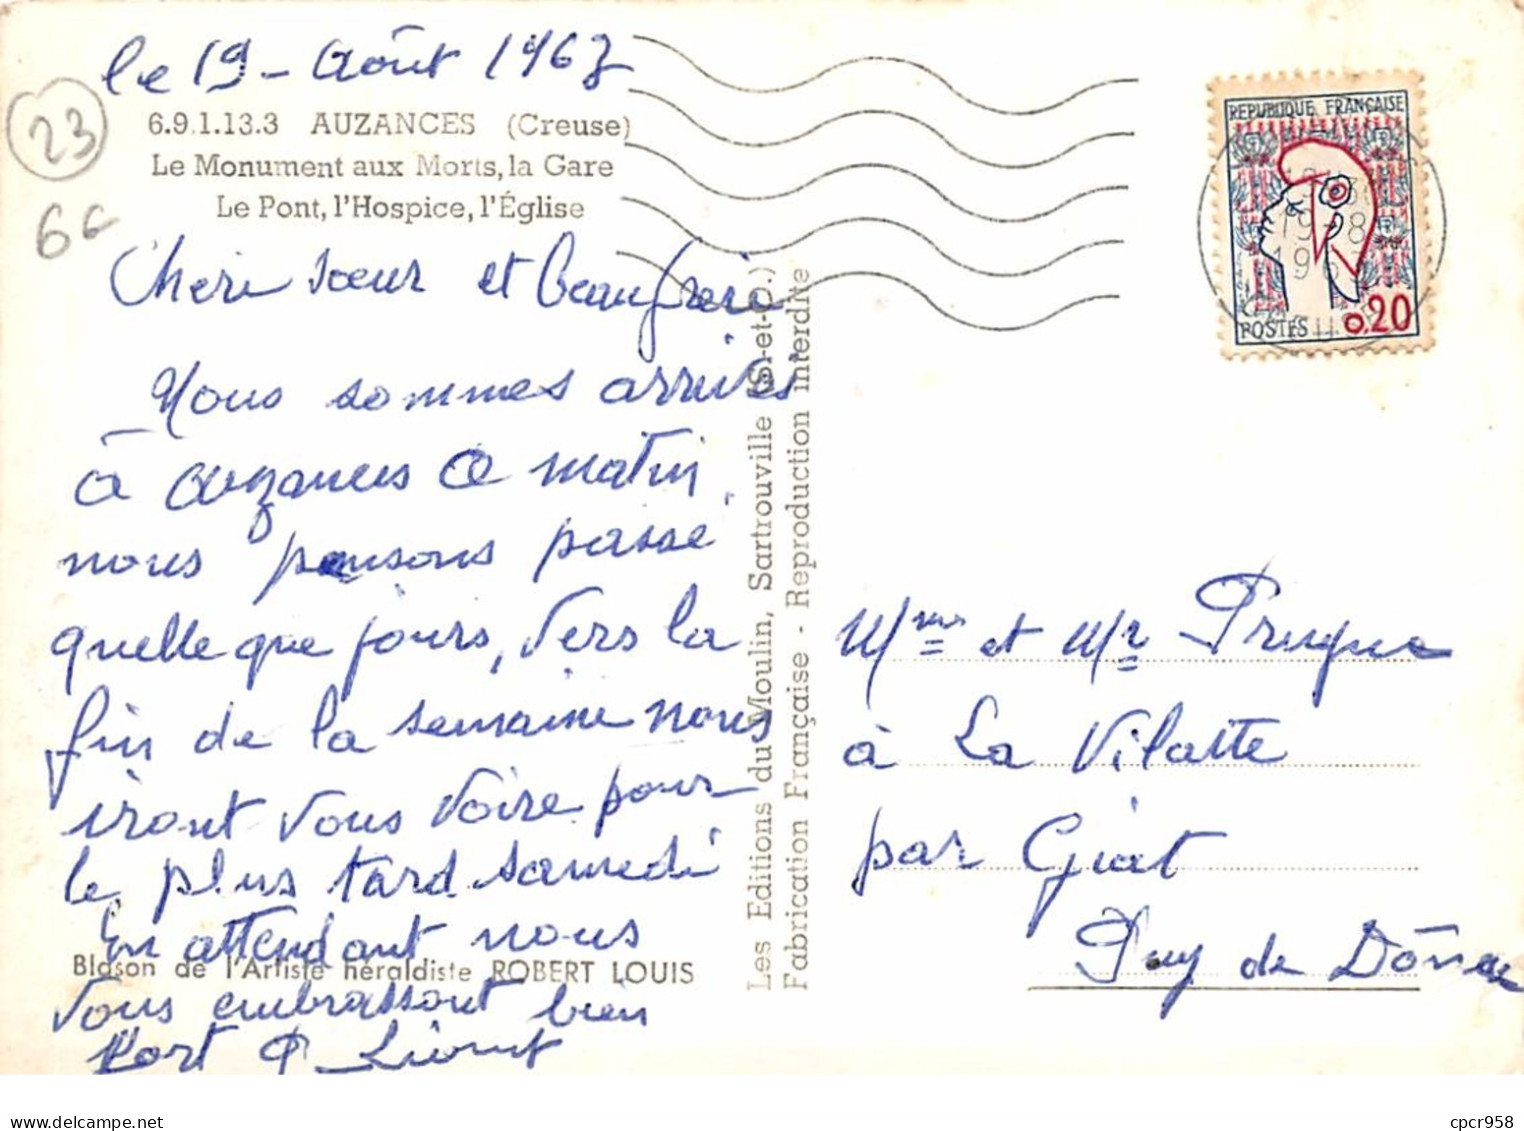 le 19 - Août 1967
23
6.9.1.13.3 AUZANCES (Creuse)
Le Monument aux Morts, la Gare
Le Pont, l'Hospice, l'Église
Chere sœur et beaufrere
Nous sommes arrivés
à auzances ce matin
nous pensons passé
quelle que jours, vers la
fin de la semaine nous
iront vous voire pour
le plus tard samedi
En attendant nous
Blason de l'Artiste héraldiste ROBERT LOUIS
vous embrassont bien
fort
Les Editions du Moulin, Sartrouville (S.-et-O.)
Fabrication Française - Reproduction interdite
REPUBLIQUE FRANÇAISE
19-8
196
POSTES 0,20
Mme et Mr Prugne
à La Vilatte
par Giat
Puy de Dôme
cpcr958